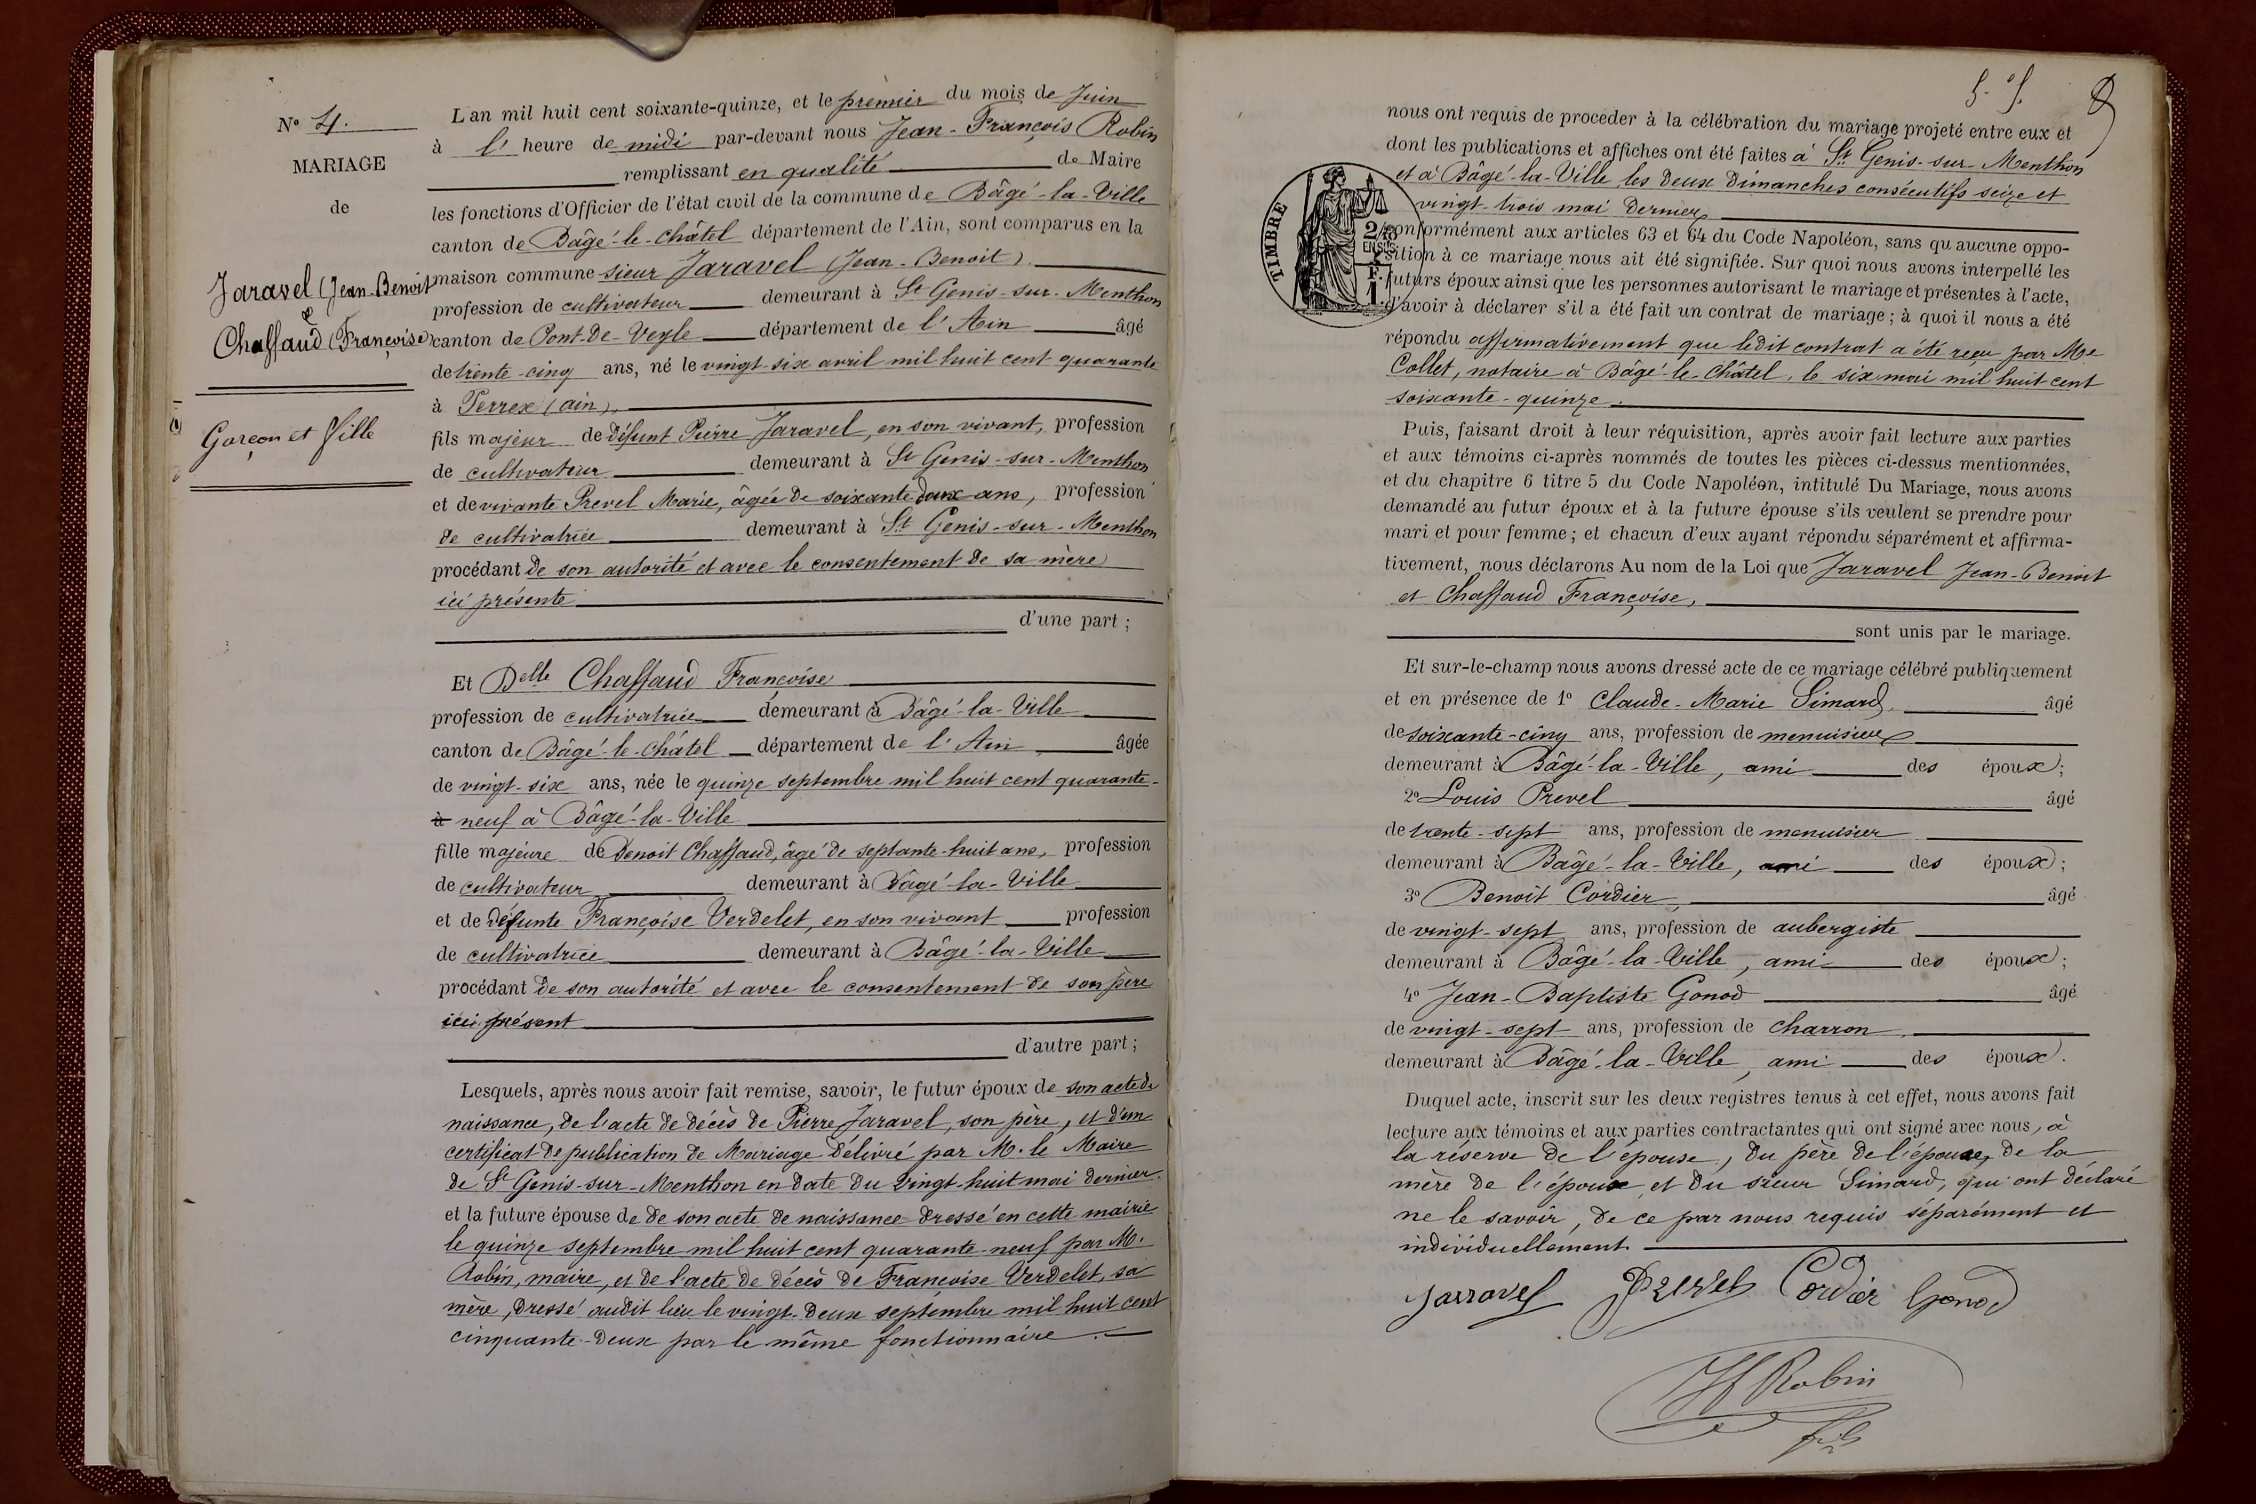 Nº 4.
MARIAGE
de
Jaravel (Jean-Benoit
et
Chaffaud (Françoise)
Garçon et fille
L an mil huit cent soixante-quinze, et le premier du mois de Juin
à l' heure de midi par-devant nous Jean-François Robin
remplissant en qualité de Maire
les fonctions d'Officier de l'état civil de la commune de Bâgé-la-Ville
canton de Bâgé-le-Châtel département de l'Ain, sont comparus en la
maison commune sieur Jaravel (Jean-Benoit).
profession de cultivateur demeurant à St Genis-sur-Menthon
canton de Pont-de-Veyle département de l'Ain âgé
de trente-cinq ans, né le vingt-six avril mil huit cent quarante
à Perrex (ain).
fils majeur de défunt Pierre Jaravel, en son vivant, profession
de cultivateur demeurant à St Genis-sur-Menthon
et de vivante Prevel Marie, âgée de soixante deux ans, profession
de cultivatrice demeurant à St Genis-sur-Menthon
procédant de son autorité et avec le consentement de sa mère
ici présente
d'une part ;
Et Delle Chaffaud Françoise
profession de cultivatrice demeurant à Bâgé-la-Ville
canton de Bâgé-le-Châtel département de l'Ain âgée
de vingt-six ans, née le quinze septembre mil huit cent quarante-
à neuf à Bâgé-la-Ville
fille majeure de Benoit Chaffaud, âgé de septante-huit ans, profession
de cultivateur demeurant à Bâgé-la-Ville
et de défunte Françoise Verdelet, en son vivant profession
de cultivatrice demeurant à Bâgé-la-Ville
procédant de son autorité et avec le consentement de son père
ici présent
d'autre part ;
Lesquels, après nous avoir fait remise, savoir, le futur époux de son acte de
naissance, de l'acte de décès de Pierre Jaravel, son père, et d'un
certificat de publication de Mariage délivré par M. le Maire
de St Genis-sur-Menthon en date du vingt-huit mai dernier.
et la future épouse de de son acte de naissance dressé en cette mairie
le quinze septembre mil huit cent quarante-neuf par M.
Robin, maire, et de l'acte de décès de Françoise Verdelet, sa
mère, dressé audit lieu le vingt-deux septembre mil huit cent
cinquante-deux par le même fonctionnaire.
8
nous ont requis de procéder à la célébration du mariage projeté entre eux et
dont les publications et affiches ont été faites à St Genis-sur-Menthon
et à Bâgé-la-Ville les deux dimanches consécutifs seize et
vingt-trois mai dernier
TIMBRE
2/10
EN SUS
1 F.
conformément aux articles 63 et 64 du Code Napoléon, sans qu aucune oppo-
sition à ce mariage nous ait été signifiée. Sur quoi nous avons interpellé les
futurs époux ainsi que les personnes autorisant le mariage et présentes à l'acte,
d'avoir à déclarer s'il a été fait un contrat de mariage ; à quoi il nous a été
répondu affirmativement que ledit contrat a été reçu par Me
Collet, notaire à Bâgé-le-Châtel, le six mai mil huit cent
soixante-quinze.
Puis, faisant droit à leur réquisition, après avoir fait lecture aux parties
et aux témoins ci-après nommés de toutes les pièces ci-dessus mentionnées,
et du chapitre 6 titre 5 du Code Napoléon, intitulé Du Mariage, nous avons
demandé au futur époux et à la future épouse s'ils veulent se prendre pour
mari et pour femme ; et chacun d'eux ayant répondu séparément et affirma-
tivement, nous déclarons Au nom de la Loi que Jaravel Jean-Benoit
et Chaffaud Françoise,
sont unis par le mariage.
Et sur-le-champ nous avons dressé acte de ce mariage célébré publiquement
et en présence de 1º Claude-Marie Simard, âgé
de soixante-cinq ans, profession de menuisier
demeurant à Bâgé-la-Ville, ami des époux ;
2º Louis Prevel âgé
de trente-sept ans, profession de menuisier
demeurant à Bâgé-la-Ville, ami des époux ;
3º Benoit Cordier, âgé
de vingt-sept ans, profession de aubergiste
demeurant à Bâgé-la-Ville, ami des époux ;
4º Jean-Baptiste Gonod âgé
de vingt-sept ans, profession de charron
demeurant à Bâgé-la-Ville, ami des époux.
Duquel acte, inscrit sur les deux registres tenus à cet effet, nous avons fait
lecture aux témoins et aux parties contractantes qui ont signé avec nous, à
la réserve de l'épouse, du père de l'épouse, de la
mère de l'époux et du sieur Simard, qui ont déclaré
ne le savoir, de ce par nous requis séparément et
individuellement.
Jarravel Prevel Cordier Gonod
Jf Robin
fils